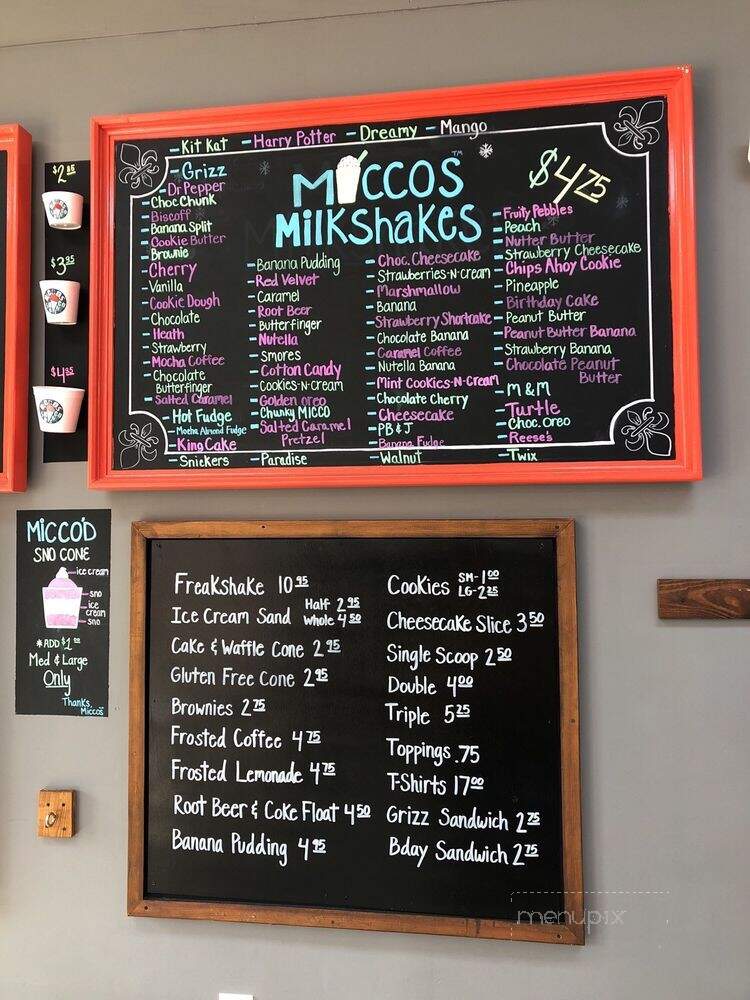 - Kit Kat - Harry Potter - Dreamy - Mango
- Grizz
- Dr Pepper
- Choc Chunk
- Biscoff
- Banana Split
- Cookie Butter
- Brownie
- Cherry
- Vanilla
- Cookie Dough
- Chocolate
- Heath
- Strawberry
- Mocha Coffee
- Chocolate
Butterfinger
- Salted Caramel
- Hot Fudge
- Mocha Almond Fudge
- King Cake
- Snickers
MiCCOS ™
MilkShakes
$4.75
- Banana Pudding
- Red Velvet
- Caramel
- Root Beer
- Butterfinger
- Nutella
- Smores
- Cotton Candy
- Cookies-N-Cream
- Golden Oreo
- Chunky MICCO
- Salted Caramel
Pretzel
- Paradise
- Choc. Cheesecake
- Strawberries-N-cream
- Marshmallow
- Banana
- Strawberry Shortcake
- Chocolate Banana
- Caramel Coffee
- Nutella Banana
- Mint Cookies-N-Cream
- Chocolate Cherry
- Cheesecake
- PB & J
- Banana Fudge
- Walnut
- Fruity Pebbles
- Peach
- Nutter Butter
- Strawberry Cheesecake
- Chips Ahoy Cookie
- Pineapple
- Birthday Cake
- Peanut Butter
- Peanut Butter Banana
- Strawberry Banana
- Chocolate Peanut
Butter
- M & M
- Turtle
- Choc. Oreo
- Reese's
- Twix
$2.85
$3.35
$4.35
MiCCO'D
SNO CONE
ice cream
sno
ice
cream
sno
* ADD $1.00
Med & Large
Only
Thanks,
Miccos
Freakshake 10.95
Ice Cream Sand Half 2.95
Whole 4.50
Cake & Waffle Cone 2.95
Gluten Free Cone 2.95
Brownies 2.75
Frosted Coffee 4.75
Frosted Lemonade 4.75
Root Beer & Coke Float 4.50
Banana Pudding 4.95
Cookies SM-1.00
LG-2.25
Cheesecake Slice 3.50
Single Scoop 2.50
Double 4.00
Triple 5.25
Toppings .75
T-Shirts 17.00
Grizz Sandwich 2.75
Bday Sandwich 2.75
menupix